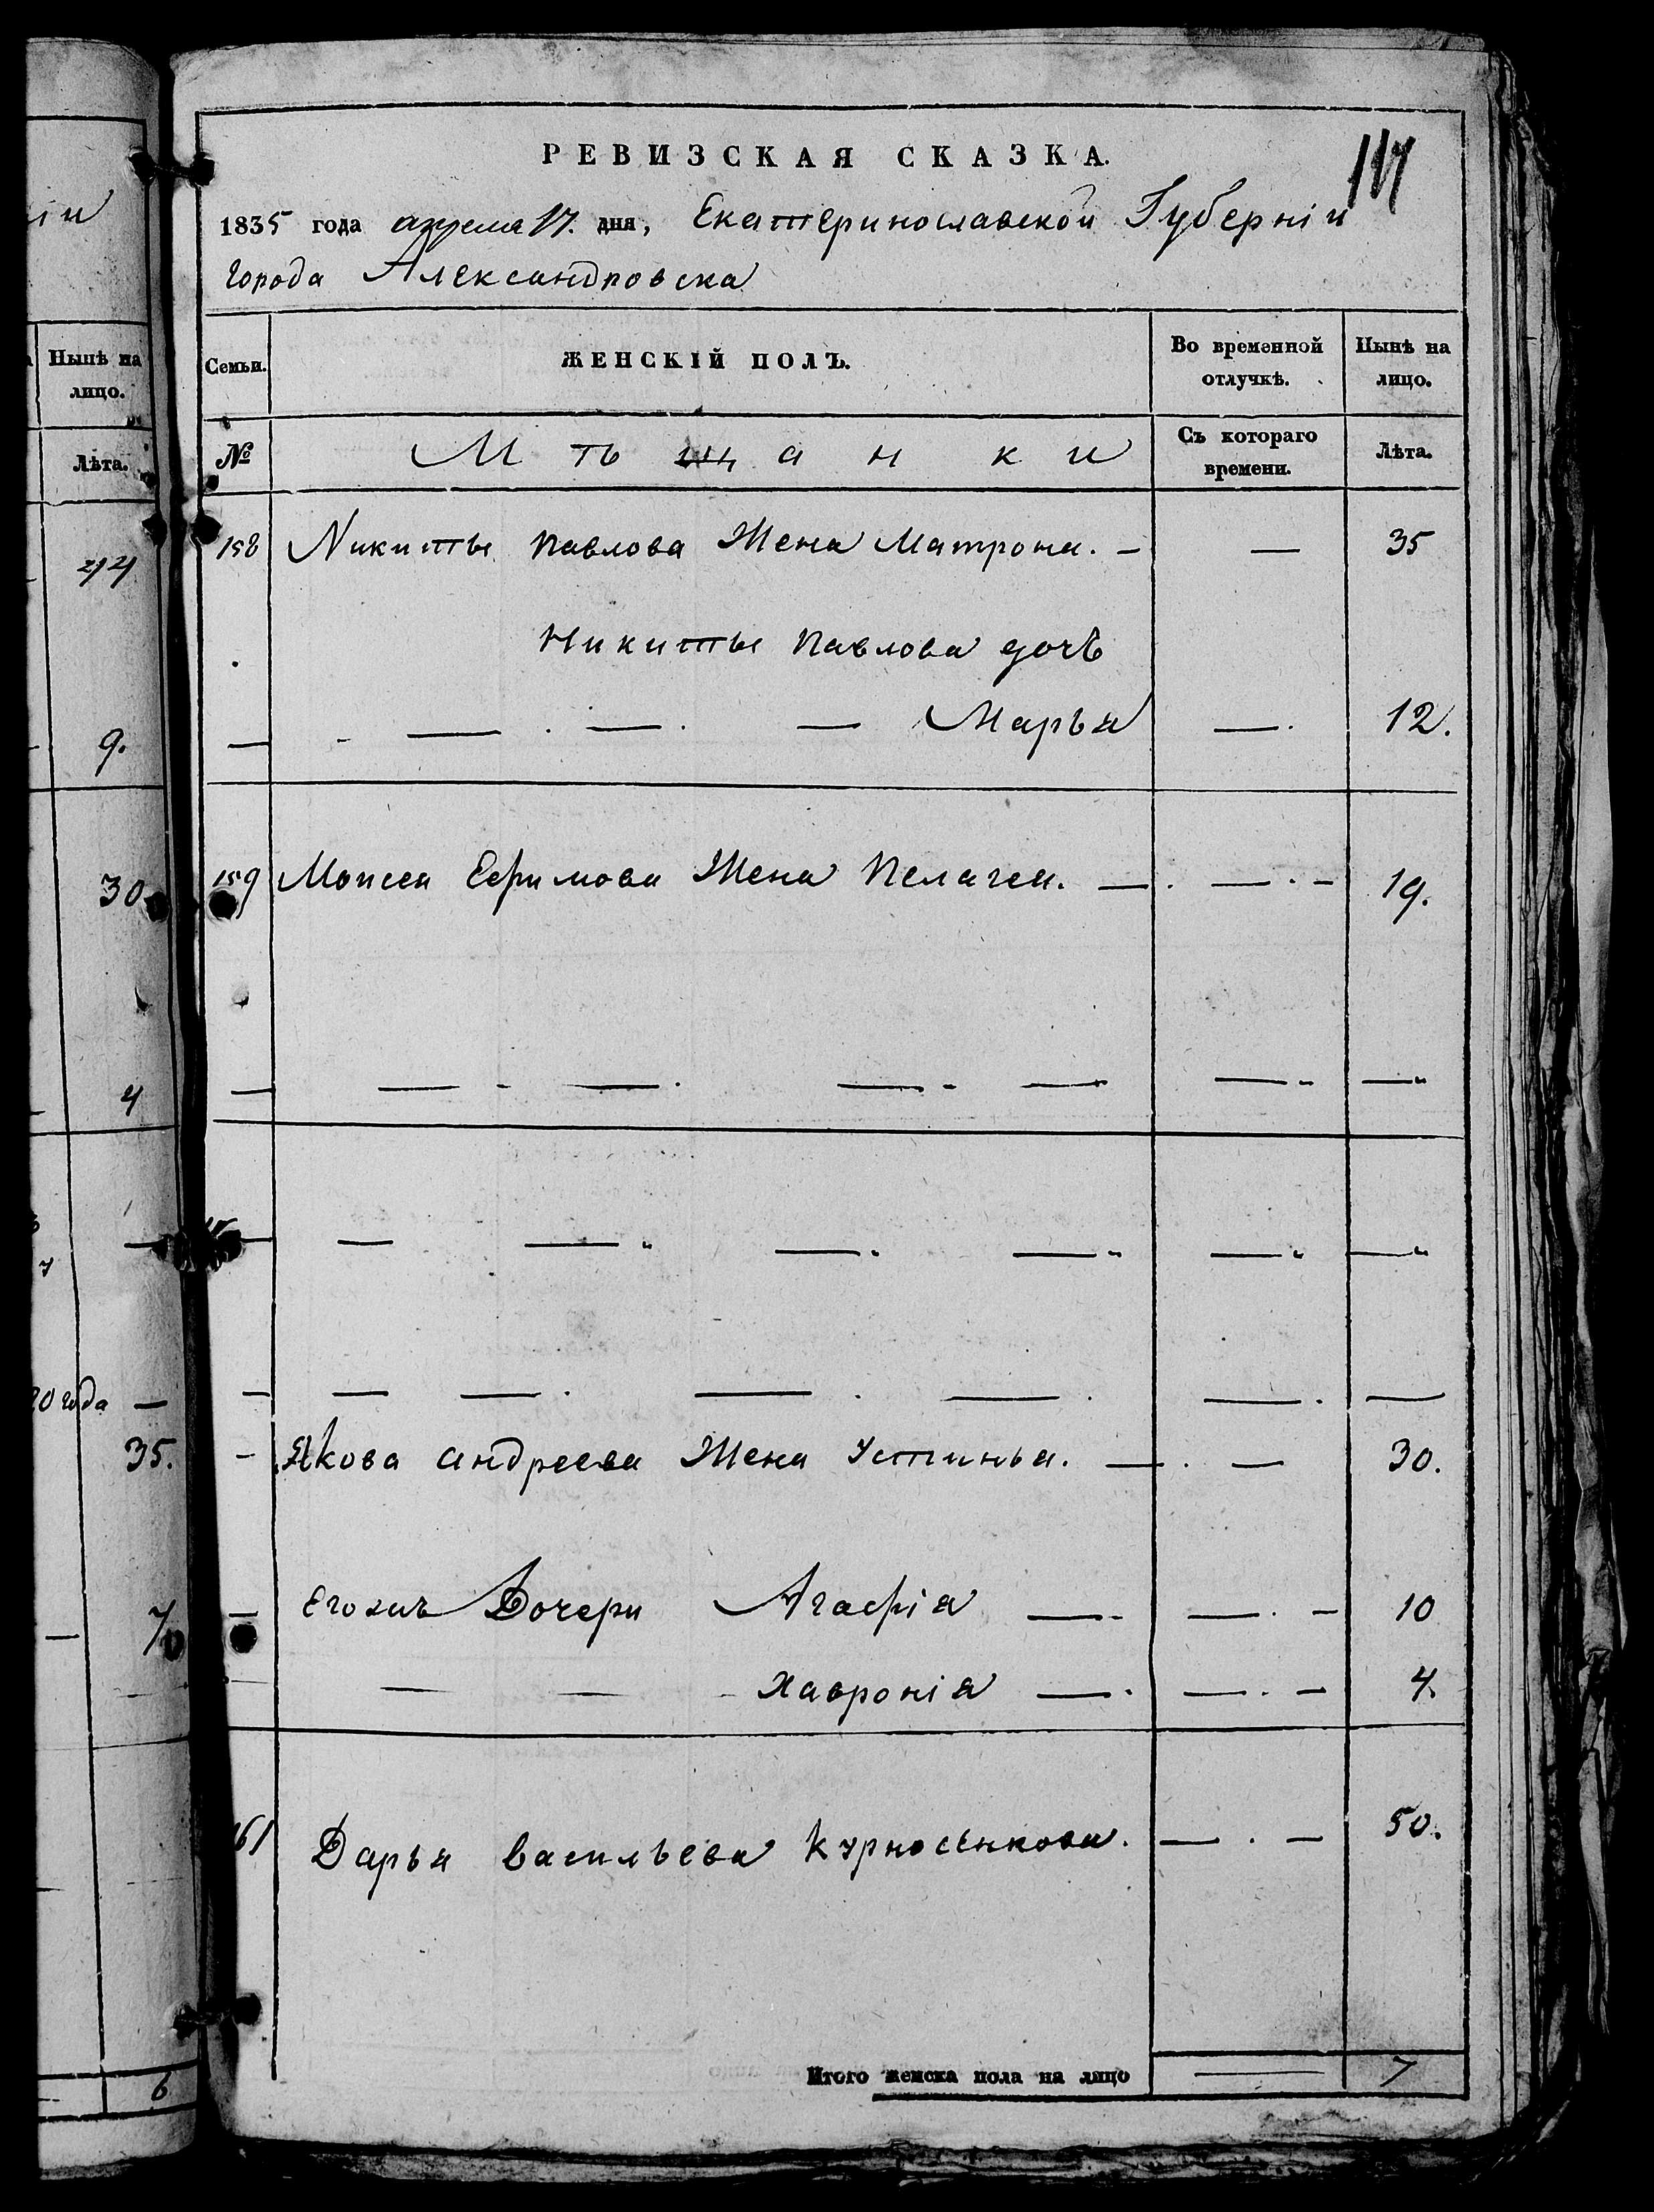 іи
РЕВИЗСКАЯ СКАЗКА.
117
1835 года апреля 17. дня, Екатеринославской Губерніи
города Александровска
Нынѣ на лицо.
Лѣта.
44
9.
30
4
20 года —
35.
7
6
Семьи. ЖЕНСКІЙ ПОЛЪ. Во временной отлучкѣ. Нынѣ на лицо.
№ Мѣщанки Съ котораго времени. Лѣта.
158 Никиты Павлова Жена Матрона. — — 35
Никиты Павлова дочь
— — — — Марья — 12.
159 Моисея Ефимова Жена Пелагея. — — 19.
— — — — — — —
— — — — — — —
— — — — — — —
— Якова Андреева Жена Устинья. — — 30.
— Его же Дочери Агафія — — 10
— — Хавронія — — 4.
161 Дарья Васильева Курносенкова. — — 50.
Итого женска пола на лицо — 7